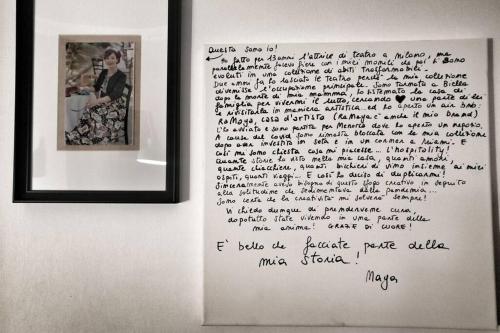 Questa sono io!
Ho fatto per 13 anni l'attrice di teatro a Milano, ma
parallelamente facevo fiere con i miei monili che poi si sono
evoluti in una collezione di abiti Trasformabili.
Due anni fa ho lasciato il teatro perché la mia collezione
divenisse l'occupazione principale. Sono tornata a Biella
dopo la morte di mia mamma, ho sistemato la casa di
famiglia per vivermi il lutto, cercando ♥ una parte di lei
e rivisitarla in maniera artistica ed ho aperto un air bnb:
RaMaya, casa d'artista (RaMaya è anche il mio brand)
L'ho avviato e sono partita per Menorca dove ho aperto un negozio.
A causa del covid sono rimasta bloccata con la mia collezione
dopo aver investito in seta e in un corner a Miami. E
così mi sono chiesta cosa mi piacesse... l'hospitality!
Quante storie ho visto nella mia casa, quanti amori,
quante chiacchiere, quanti bicchieri di vino insieme ai miei
ospiti, quanti viaggi... E così ho deciso di duplicarmi!
Sinceramente avevo bisogno di questo sfogo creativo in seguito
alla solitudine che sedimentava dalla pandemia...
Sono certa che la creatività mi salverà sempre!
Vi chiedo dunque di prendervene cura,
dopotutto state vivendo in una parte della
mia anima! GRAZIE DI CUORE!
E' bello che facciate parte della
mia storia!
Maya